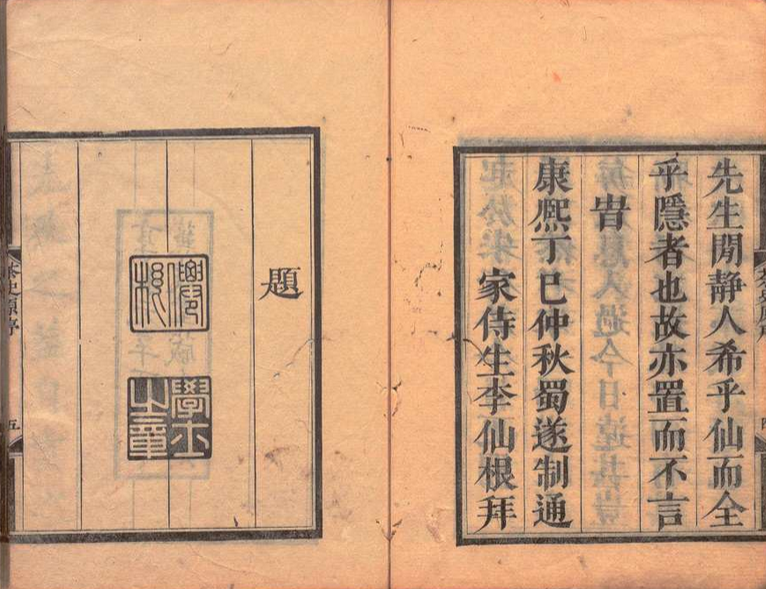 先生閒静人希乎仙而全
乎隱者也故亦置而不言
旹
康熙丁巳仲秋蜀遂制通
家侍生李仙根拜
題
學士之章
五